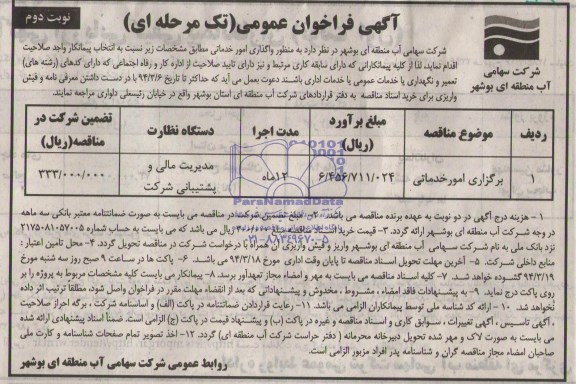 نوبت دوم
آگهی فراخوان عمومی(تک مرحله ای)
شرکت سهامی
آب منطقه ای بوشهر
شرکت سهامی آب منطقه ای بوشهر در نظر دارد به منظور واگذاری امور خدماتی مطابق مشخصات زیر نسبت به انتخاب پیمانکار واجد صلاحیت
اقدام نماید. لذا از کلیه پیمانکارانی که دارای سابقه کاری مرتبط و نیز دارای تایید صلاحیت از اداره کار و رفاه اجتماعی که دارای کدهای (رشته های)
تعمیر و نگهداری یا خدمات عمومی یا خدمات اداری باشند دعوت بعمل می آید که حداکثر تا تاریخ ۹۴/۳/۶ با در دست داشتن معرفی نامه و فیش
واریزی برای خرید اسناد مناقصه به دفتر قراردادهای شرکت آب منطقه ای استان بوشهر واقع در خیابان رئیسعلی دلواری مراجعه نمایند.
ردیف موضوع مناقصه مبلغ برآورد (ریال) مدت اجرا دستگاه نظارت تضمین شرکت در مناقصه(ریال)
۱ برگزاری امورخدماتی ۶/۴۵۶/۷۱۱/۰۲۴ ۱۲ماه مدیریت مالی و پشتیبانی شرکت ۳۳۳/۰۰۰/۰۰۰
ParsNamadData
۰۲۱-۸۸۳۴۹۶۷۰-۵
۱ - هزینه درج آگهی در دو نوبت به عهده برنده مناقصه می باشد. ۲- مبلغ تضمین شرکت در مناقصه می بایست به صورت ضمانتنامه معتبر بانکی سه ماهه
در وجه شرکت آب منطقه ای بوشهر ارائه گردد. ۳- قیمت خرید اسناد مناقصه مبلغ ریال می باشد که می بایست به حساب شماره ۲۱۷۵۰۸۱۰۵۷۰۰۵
نزد بانک ملی به نام شرکت سهامی آب منطقه ای بوشهر واریز و فیش واریزی آن همراه با درخواست شرکت در مناقصه تحویل گردد. ۴- محل تامین اعتبار :
منابع داخلی شرکت. ۵- آخرین مهلت تحویل اسناد مناقصه تا پایان وقت اداری مورخ ۹۴/۳/۱۸ می باشد. ۶- پاکت ها در ساعت ۹ صبح روز سه شنبه مورخ
۹۴/۳/۱۹ گشوده خواهد شد. ۷- کلیه اسناد مناقصه می بایست به مهر و امضاء مجاز تعهدآور برسد. ۸- پیمانکار می بایست کلیه مشخصات مربوط به پروژه را بر
روی پاکت درج نماید. ۹- به پیشنهادات فاقد امضاء ، مشروط ، مخدوش و پیشنهاداتی که بعد از انقضاء مهلت مقرر در فراخوان واصل شود، مطلقا ترتیب اثر داده
نخواهد شد. ۱۰- ارائه کد شناسه ملی توسط پیمانکاران الزامی می باشد. ۱۱- رعایت قراردادن ضمانتنامه در پاکت (الف) و اساسنامه شرکت ، برگه احراز صلاحیت
، آگهی تاسیس ، آگهی تغییرات ، سوابق کاری و اسناد مناقصه و غیره در پاکت (ب) و پیشنهاد قیمت در پاکت (ج) الزامی است. ضمناً اسناد پیشنهادی ارائه شده
می بایست به صورت لاک و مهر شده تحویل دبیرخانه محرمانه ( دفتر حراست شرکت آب منطقه ای) گردد. ۱۲- اخذ تصویر تمام صفحات شناسنامه و کارت ملی
صاحبان امضاء مجاز مناقصه گران و شناسنامه پدر افراد مزبور الزامی است.
روابط عمومی شرکت سهامی آب منطقه ای بوشهر